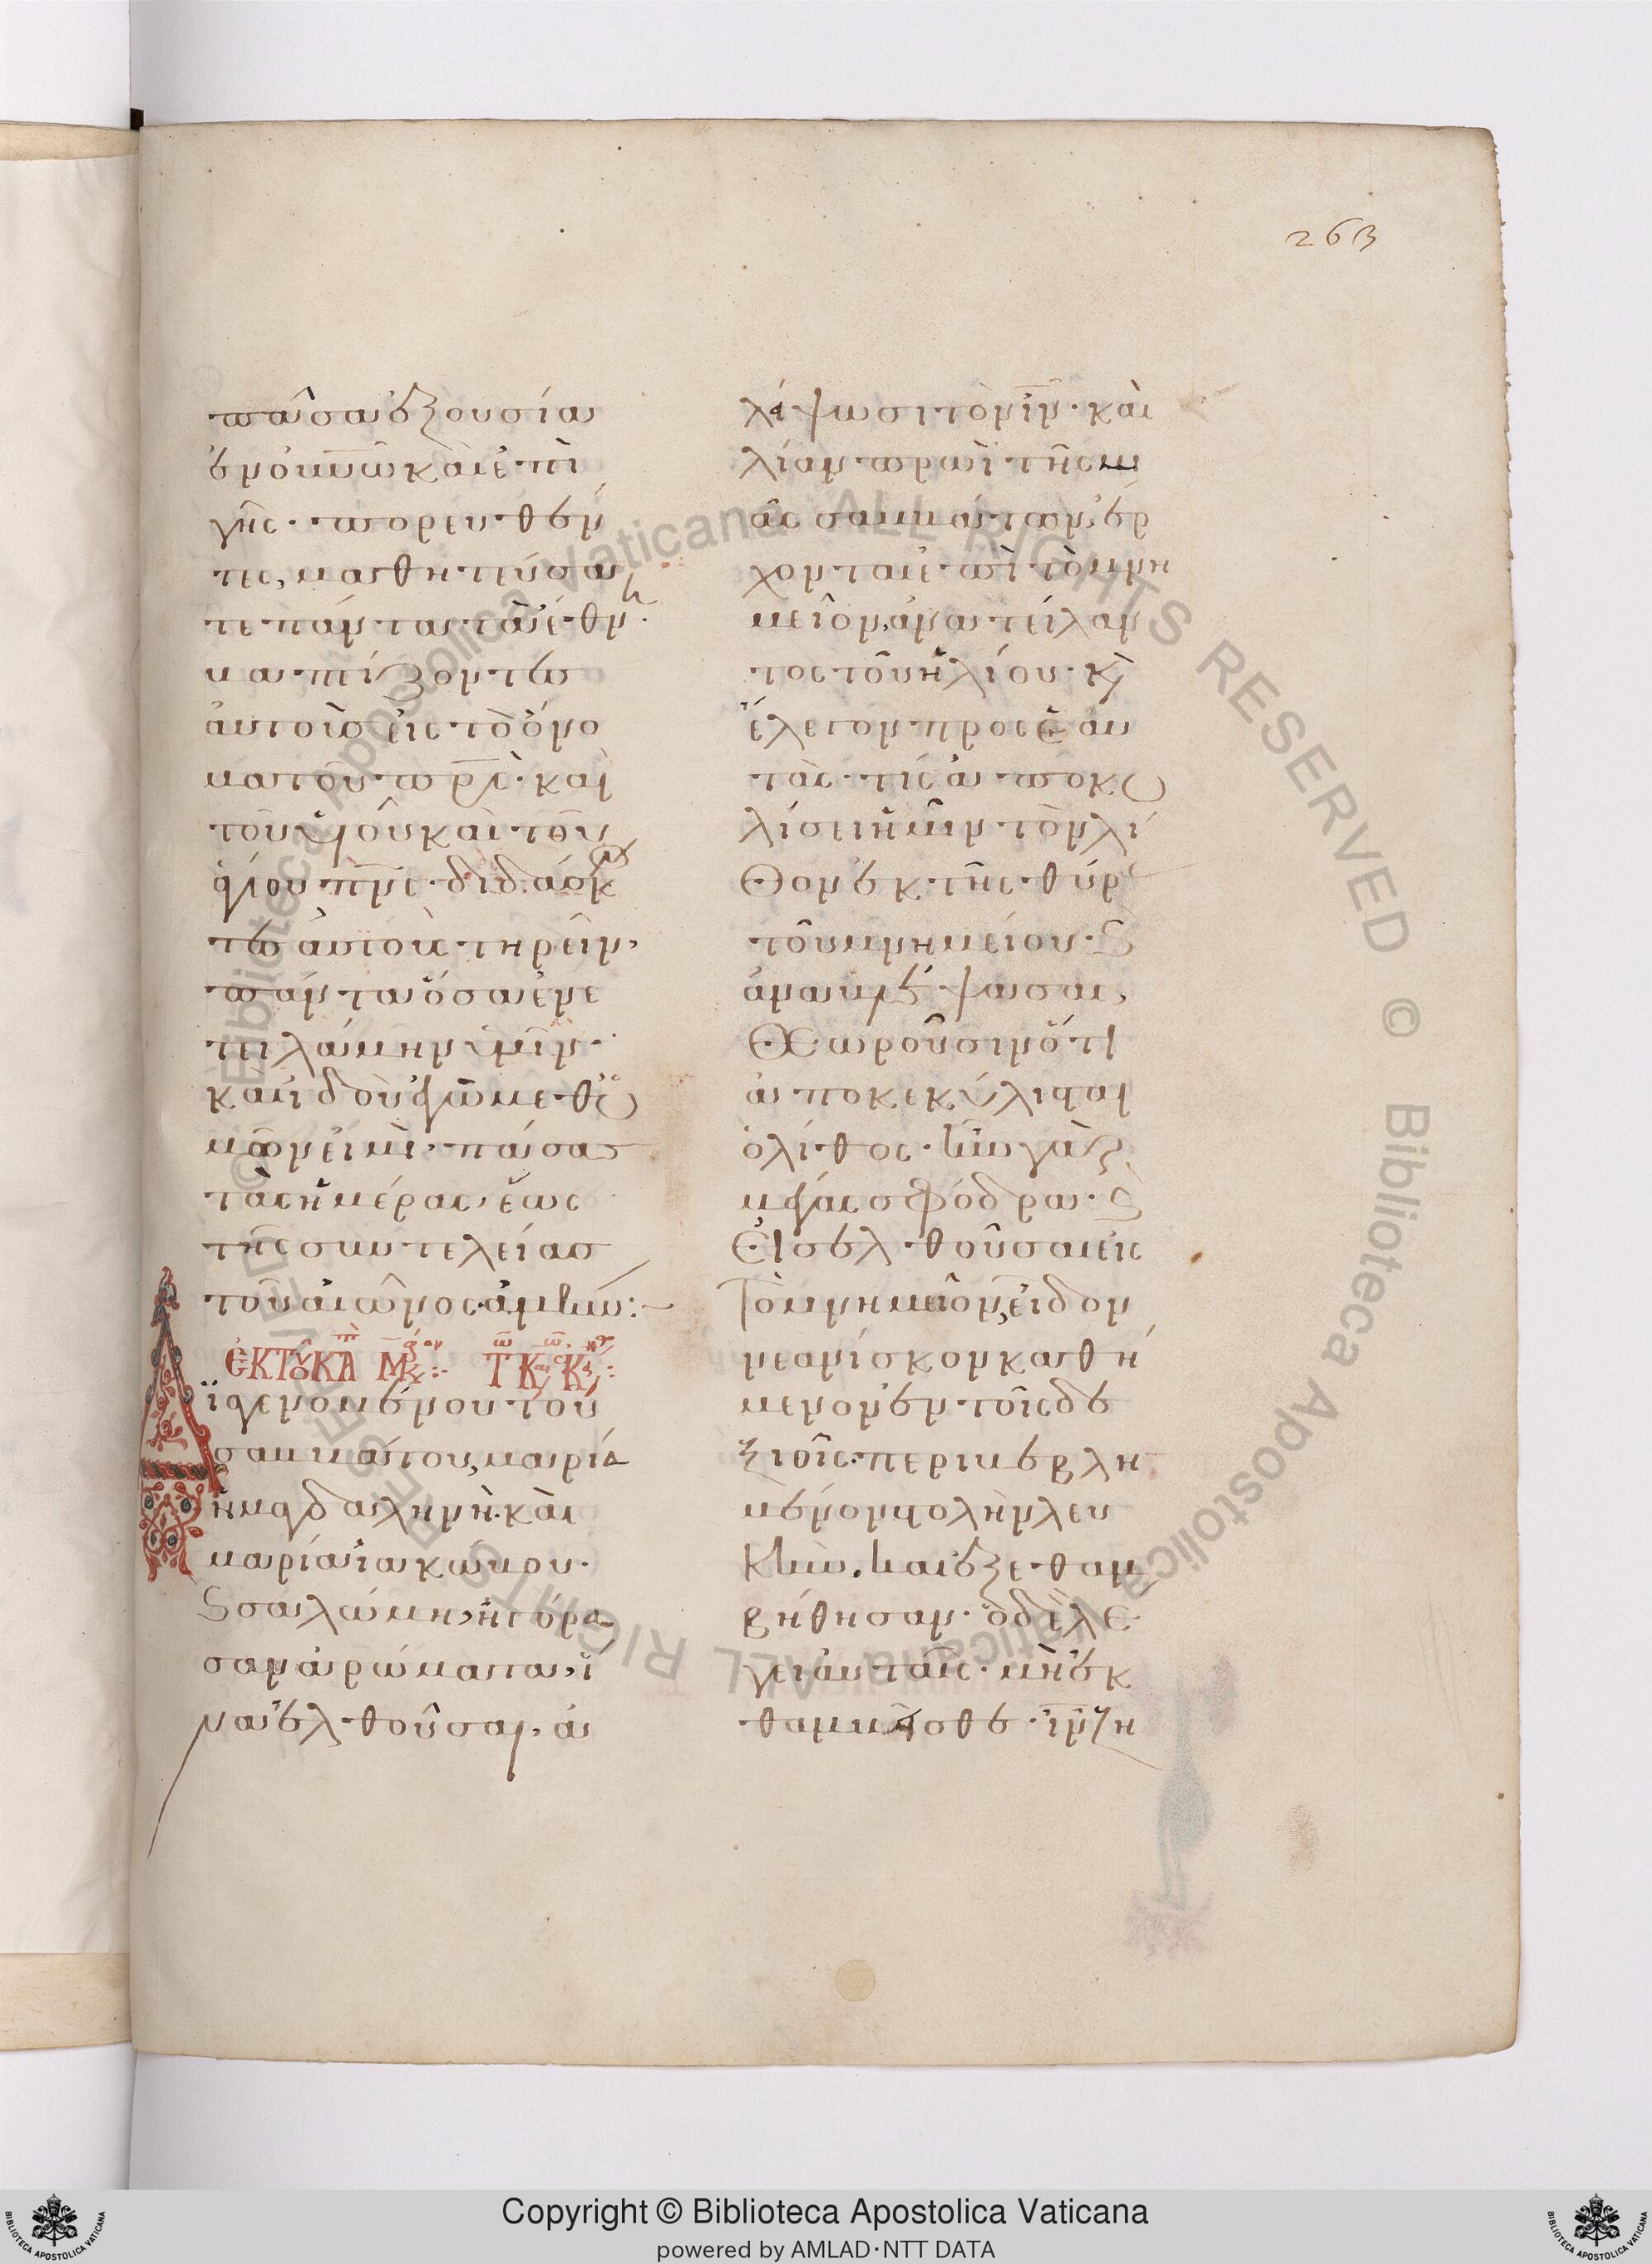 263
πᾶσα ἐξουσία
ἐν οὐνῶ καὶ ἐπὶ
γῆς· πορευθέν
τες, μαθητεύσα
τε πάντα τὰ ἔθν
βαπτίζοντες
αὐτοὺς εἰς τὸ ὄνο
μα τοῦ πρς· καὶ
τοῦ υἱοῦ καὶ τοῦ
ἁγίου πνς· διδάσκ
τες αὐτοὺς τηρεῖν,
πάντα ὅσα ἐνε
τειλάμην ὑμῖν·
καὶ ἰδοὺ ἐγὼ μεθ' ὑ
μῶν εἰμὶ, πάσας
τὰς ἡμέρας, ἕως
τῆς συντελείας
τοῦ αἰῶνος· ἀμήν:
ἐκ τοῦ κατὰ Μάρκον
Διαγενομένου τοῦ
σαββάτου, μαρία
ἡ μαγδαληνὴ· καὶ
μαρία ἰακώβου·
καὶ σαλώμη, ἠγόρα
σαν ἀρώματα, ἵ
να ἐλθοῦσαι, ἀ
λείψωσι τὸν ιν· καὶ
λίαν πρωῒ τῆς μι
ᾶς σαββάτων, ἔρ
χονται ἐπὶ τὸ μνη
μεῖον, ἀνατείλαν
τος τοῦ ἡλίου· καὶ
ἔλεγον πρὸς ἑαυ
τὰς· τίς ἀποκυ
λίσει ἡμῖν τὸν λί
θον ἐκ τῆς θύρ
τοῦ μνημείου· καὶ
ἀναβλέψασαι,
θεωροῦσιν ὅτι
ἀποκεκύλισται
ὁ λίθος· ἦν γὰρ
μέγας σφόδρα· καὶ
εἰσελθοῦσαι εἰς
τὸ μνημεῖον, εἶδον
νεανίσκον καθή
μενον ἐν τοῖς δε
ξιοῖς· περιβεβλη
μένον στολὴν λευ
κήν. καὶ ἐξεθαμ
βήθησαν· ὁ δὲ λέ
γει αὐταῖς· μὴ ἐκ
θαμβεῖσθε· ιν ζη
Copyright © Biblioteca Apostolica Vaticana
powered by AMLAD·NTT DATA